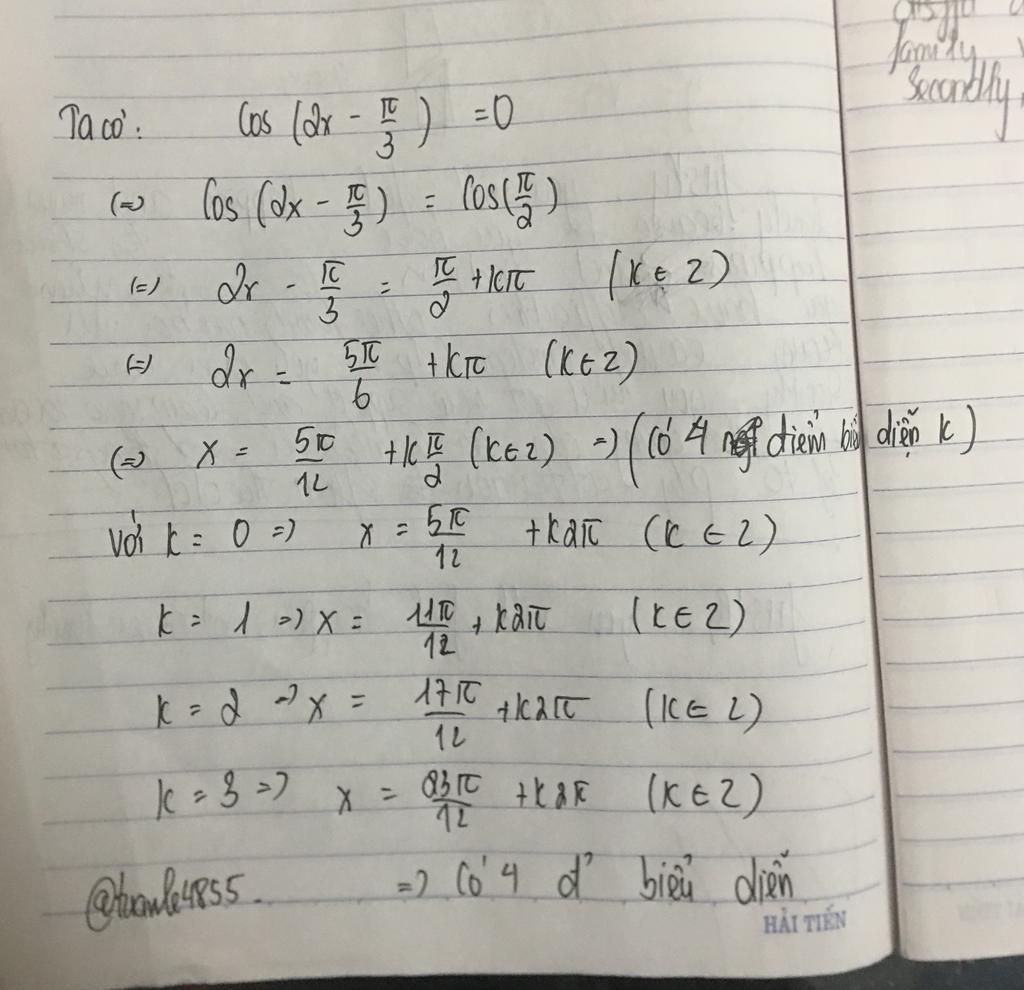 Ta có: Cos (2x - π/3) = 0
(=) Cos (2x - π/3) = Cos(π/2)
(=) 2x - π/3 = π/2 + kπ (k ∈ Z)
(=) 2x = 5π/6 + kπ (k ∈ Z)
(=) x = 5π/12 + k π/2 (k ∈ Z) => (Có 4 điểm biểu diễn k)
Với k = 0 => x = 5π/12 + k2π (k ∈ Z)
k = 1 => x = 11π/12 + k2π (k ∈ Z)
k = 2 => x = 17π/12 + k2π (k ∈ Z)
k = 3 => x = 23π/12 + k2π (k ∈ Z)
@tuanle4855. => Có 4 đ' biểu diễn
HẢI TIẾN
family
Secondly,